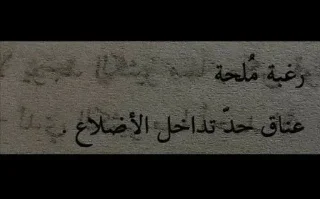 رغبة مُلحة
عناق حدّ تداخل الأضلاع .